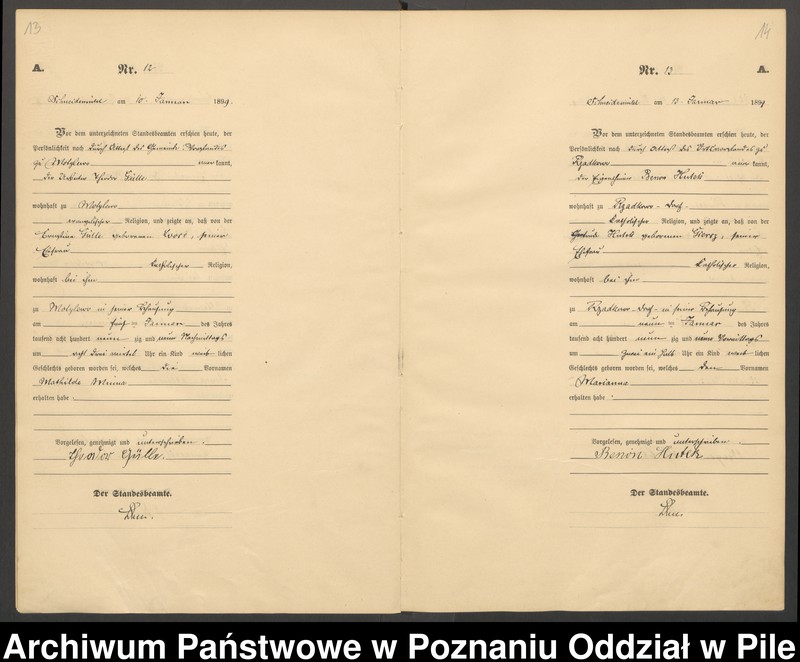 13
A.
Nr. 12
Schneidemühl am 10. Januar 1899.
Vor dem unterzeichneten Standesbeamten erschien heute, der
Persönlichkeit nach durch Attest des Gemeinde-Vorstandes
zu Motylewo kannt,
der Theodor Gülle
wohnhaft zu Motylewo
evangelischer Religion, und zeigte an, daß von der
Gülle geborenen seiner
Ehefrau
katholischer Religion,
wohnhaft bei ihm
zu Motylewo in seiner Behausung
am fünf ten Januar des Jahres
tausend acht hundert neun zig und neun Nachmittags
um acht drei viertel Uhr ein Kind weib lichen
Geschlechts geboren worden sei, welches die Vornamen
Mathilde Minna
erhalten habe
Vorgelesen, genehmigt und unterschrieben.
Theodor Gülle.
Der Standesbeamte.
14
Nr. 13
A.
Schneidemühl am 13. Januar 1899
Vor dem unterzeichneten Standesbeamten erschien heute, der
Persönlichkeit nach durch Attest des Ortsvorstandes zu
Rzadkowo kannt,
der Eigenthümer Benon Hutek
wohnhaft zu Rzadkowo-Dorf
katholischer Religion, und zeigte an, daß von der
Hutek geborenen seiner
Ehefrau
katholischer Religion,
wohnhaft bei ihm
zu Rzadkowo-Dorf in seiner Behausung
am neun ten Januar des Jahres
tausend acht hundert neun zig und neun Vormittags
um zwei ein halb Uhr ein Kind weib lichen
Geschlechts geboren worden sei, welches den Vornamen
Marianna
erhalten habe
Vorgelesen, genehmigt und unterschrieben
Benon Hutek
Der Standesbeamte.
Archiwum Państwowe w Poznaniu Oddział w Pile